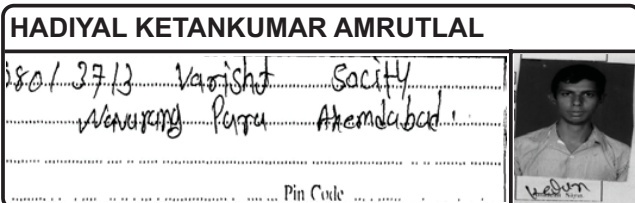 HADIYAL KETANKUMAR AMRUTLAL
380/ 3713 Varisht Socity
Navurang Pura Ahemdabad.
Pin Code